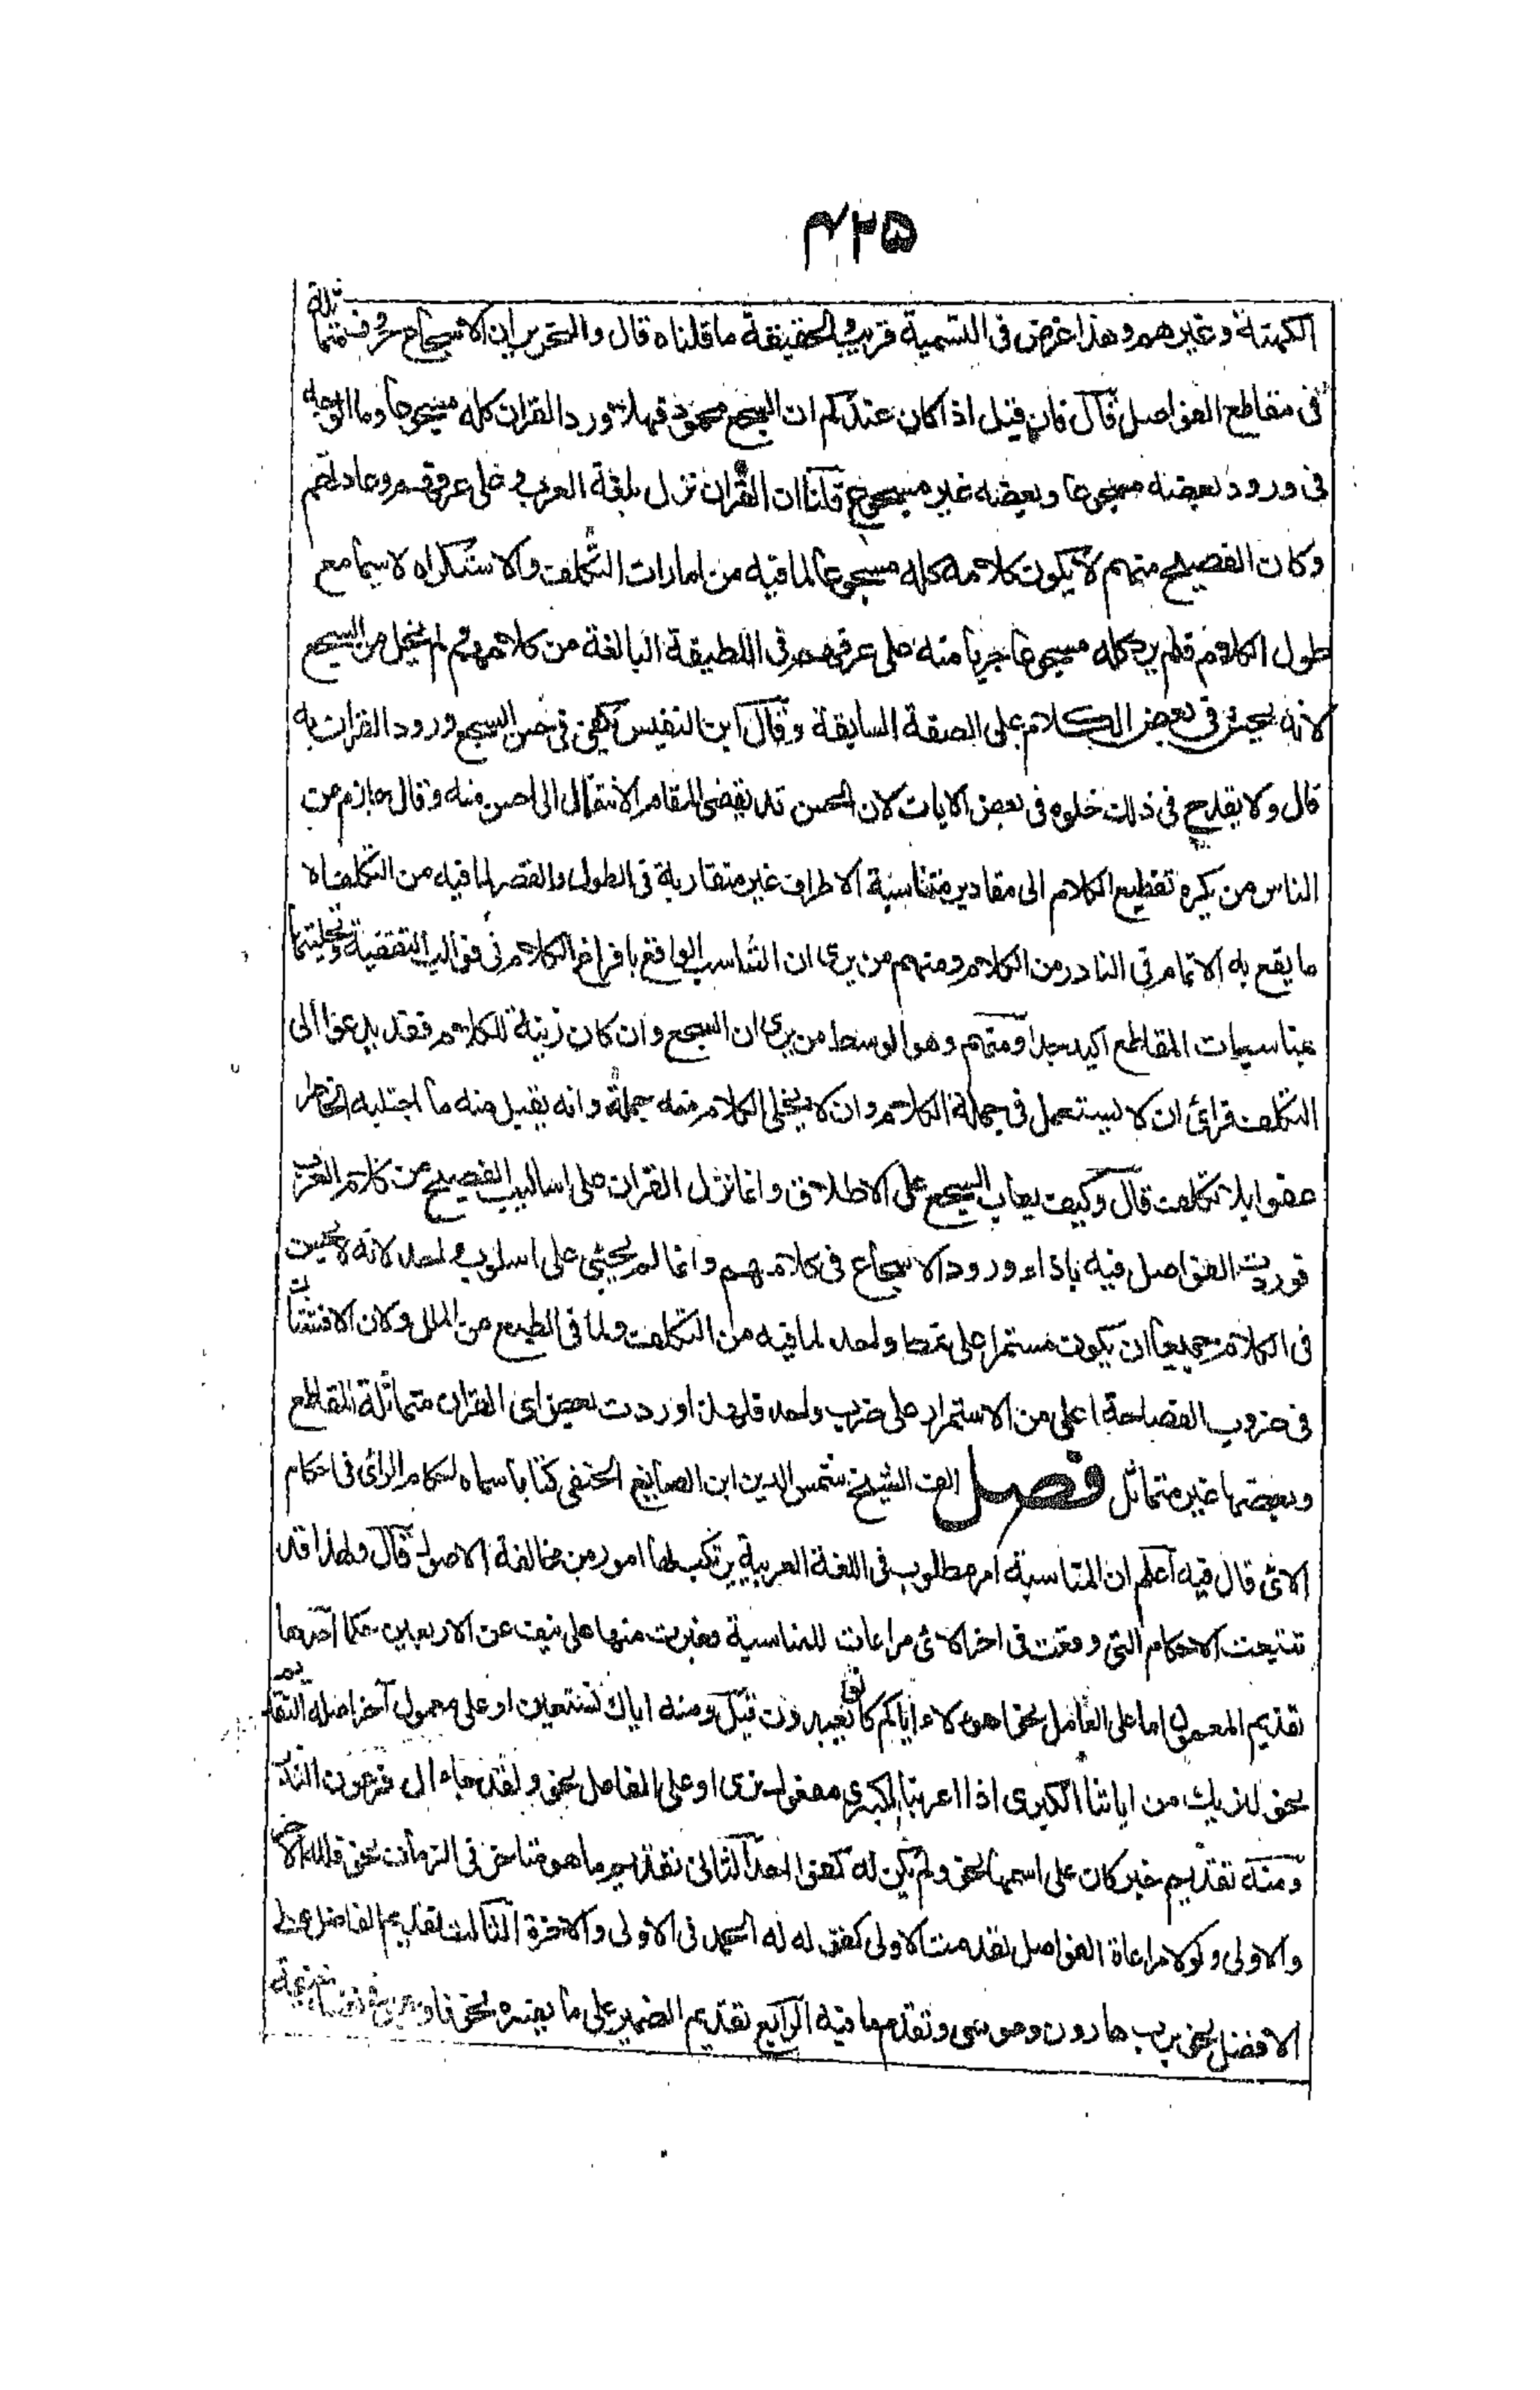 ۴۲۵
الكهنة وغيرهم وهذا غرض فى التسمية قريب والحقيقة ما قلناه قال والتحرير ان الاسجاع حروف متماثلة
فى مقاطع الفواصل قال فان قيل اذا كان عندكم ان السجع محمود فهلا ورد القران كله مسجوعا وما الوجه
فى ورود بعضه مسجوعا وبعضه غير مسجوع قلنا ان القران نزل بلغة العرب وعلى عرفهم وعادتهم
وكان الفصيح منهم لا يكون كلامه كله مسجوعا لما فيه من امارات التكلف والاستكراه لاسيما مع
طول الكلام فلم يرد كله مسجوعا جريا منه على عرفهم فى اللطيفة البالغة من كلامهم ولم يخل من السجع
لانه يحسن فى بعض الكلام على الصفة السابقة وقال ابن النفيس يكفى فى حسن السجع ورود القران به
قال ولا يقدح فى ذلك خلوه فى بعض الايات لان الحسن قد يقضى المقام الانتقال الى احسن منه وقال حازم من
الناس من يكره تقطيع الكلام الى مقادير متناسبة الاطراف غير متقاربة فى الطول والقصر لما فيه من التكلف الا
ما يقع به الاتمام فى النادر من الكلام ومنهم من يرى ان التناسب الواقع بافراغ الكلام فى قوالب التقفية وتحليتها
بمناسبات المقاطع اكيد جدا ومنهم وهو الوسط من يرى ان السجع وان كان زينة للكلام فقد يدعوا الى
التكلف فرائ ان لا يستعمل فى جملة الكلام وان لا يخلى الكلام منه جملة وانه يقبل منه ما اجتلبه الخاطر
عفوا بلا تكلف قال وكيف يعاب السجع على الاطلاق وانما نزل القران على اساليب الفصيح من كلام العرب
فوردت الفواصل فيه باذاء ورود الاسجاع فى كلامهم وانما لم يجئ على اسلوب واحد لانه لا يحسن
فى الكلام جميعا ان يكون مستمرا على نمط واحد لما فيه من التكلف ولما فى الطبع من الملل ولان الافتنان
فى ضروب الفصاحة اعلى من الاستمرار على ضرب واحد فلهذا وردت بعض اى القران متماثلة المقاطع
وبعضها غير متماثل فصل الف الشيخ شمس الدين ابن الصايغ الحنفى كتابا سماه احكام الرائ فى احكام
الائ قال فيه اعلم ان المناسبة امر مطلوب فى اللغة العربية يرتكب لها امور من مخالفة الاصول قال ولهذا قد
تتبعت الاحكام التى وقعت فى اخر الائ مراعات للمناسبة فعثرت منها على نيف عن الاربعين حكما احدها
تقديم المعمول اما على العامل نحو اهؤلاء اياكم كانوا يعبدون قيل ومنه اياك نستعين او على معمول آخر اصله التقديم
نحو لنريك من اياتنا الكبرى اذا اعربنا الكبرى مفعول نرى او على الفاعل نحو ولقد جاء ال فرعون النذر
ومنه تقديم خبر كان على اسمها نحو ولم يكن له كفوا احد الثانى تقديم ما هو متاخر فى الزمان نحو فلله الاخرة
والاولى ولولا مراعاة الفواصل لقدمت الاولى كقوله له الحمد فى الاولى والاخرة الثالث تقديم الفاضل على
الافضل نحو برب هارون وموسى وتقدم ما فيه الرابع تقديم الضمير على ما يفسره نحو فاوجس فى نفسه خيفة